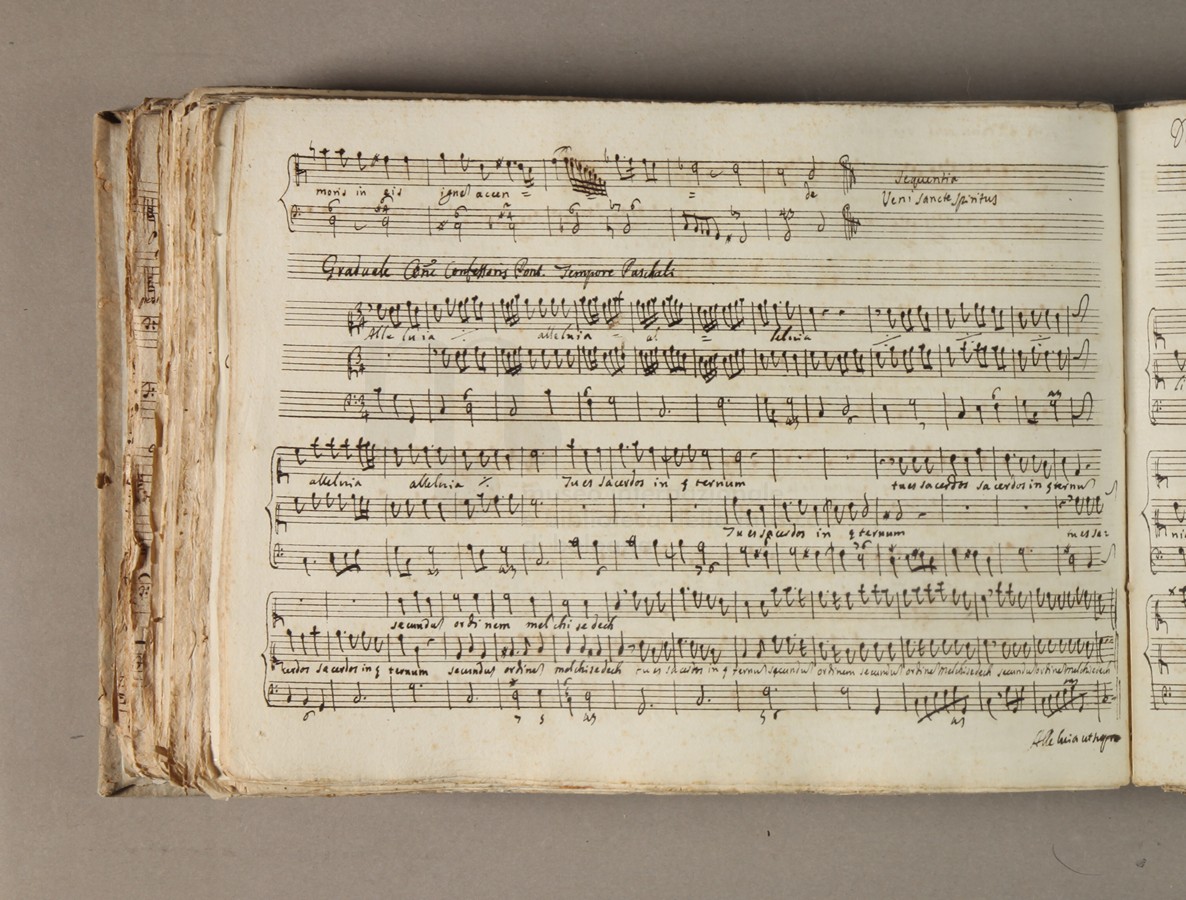 moris in eis ignes accen = = de
Sequentia
Veni Sancte Spiritus
Graduale Cõne Confessoris Pont. Tempore Paschali
Alle luia alleluia al = leluia
alleluia alleluia Tu es sacerdos in ęternum tu es sacerdos sacerdos in ęternũ
Tu es sacerdos in ęternum tu es sa:
secundũ ordinem melchisedech
cerdos sacerdos in ęternum secundũ ordinẽ melchisedech tu es sacerdos in ęternũ secundũ ordinem secundũ ordinẽ melchisedech secundũ ordinẽ melchisedech
Alleluia ut supra